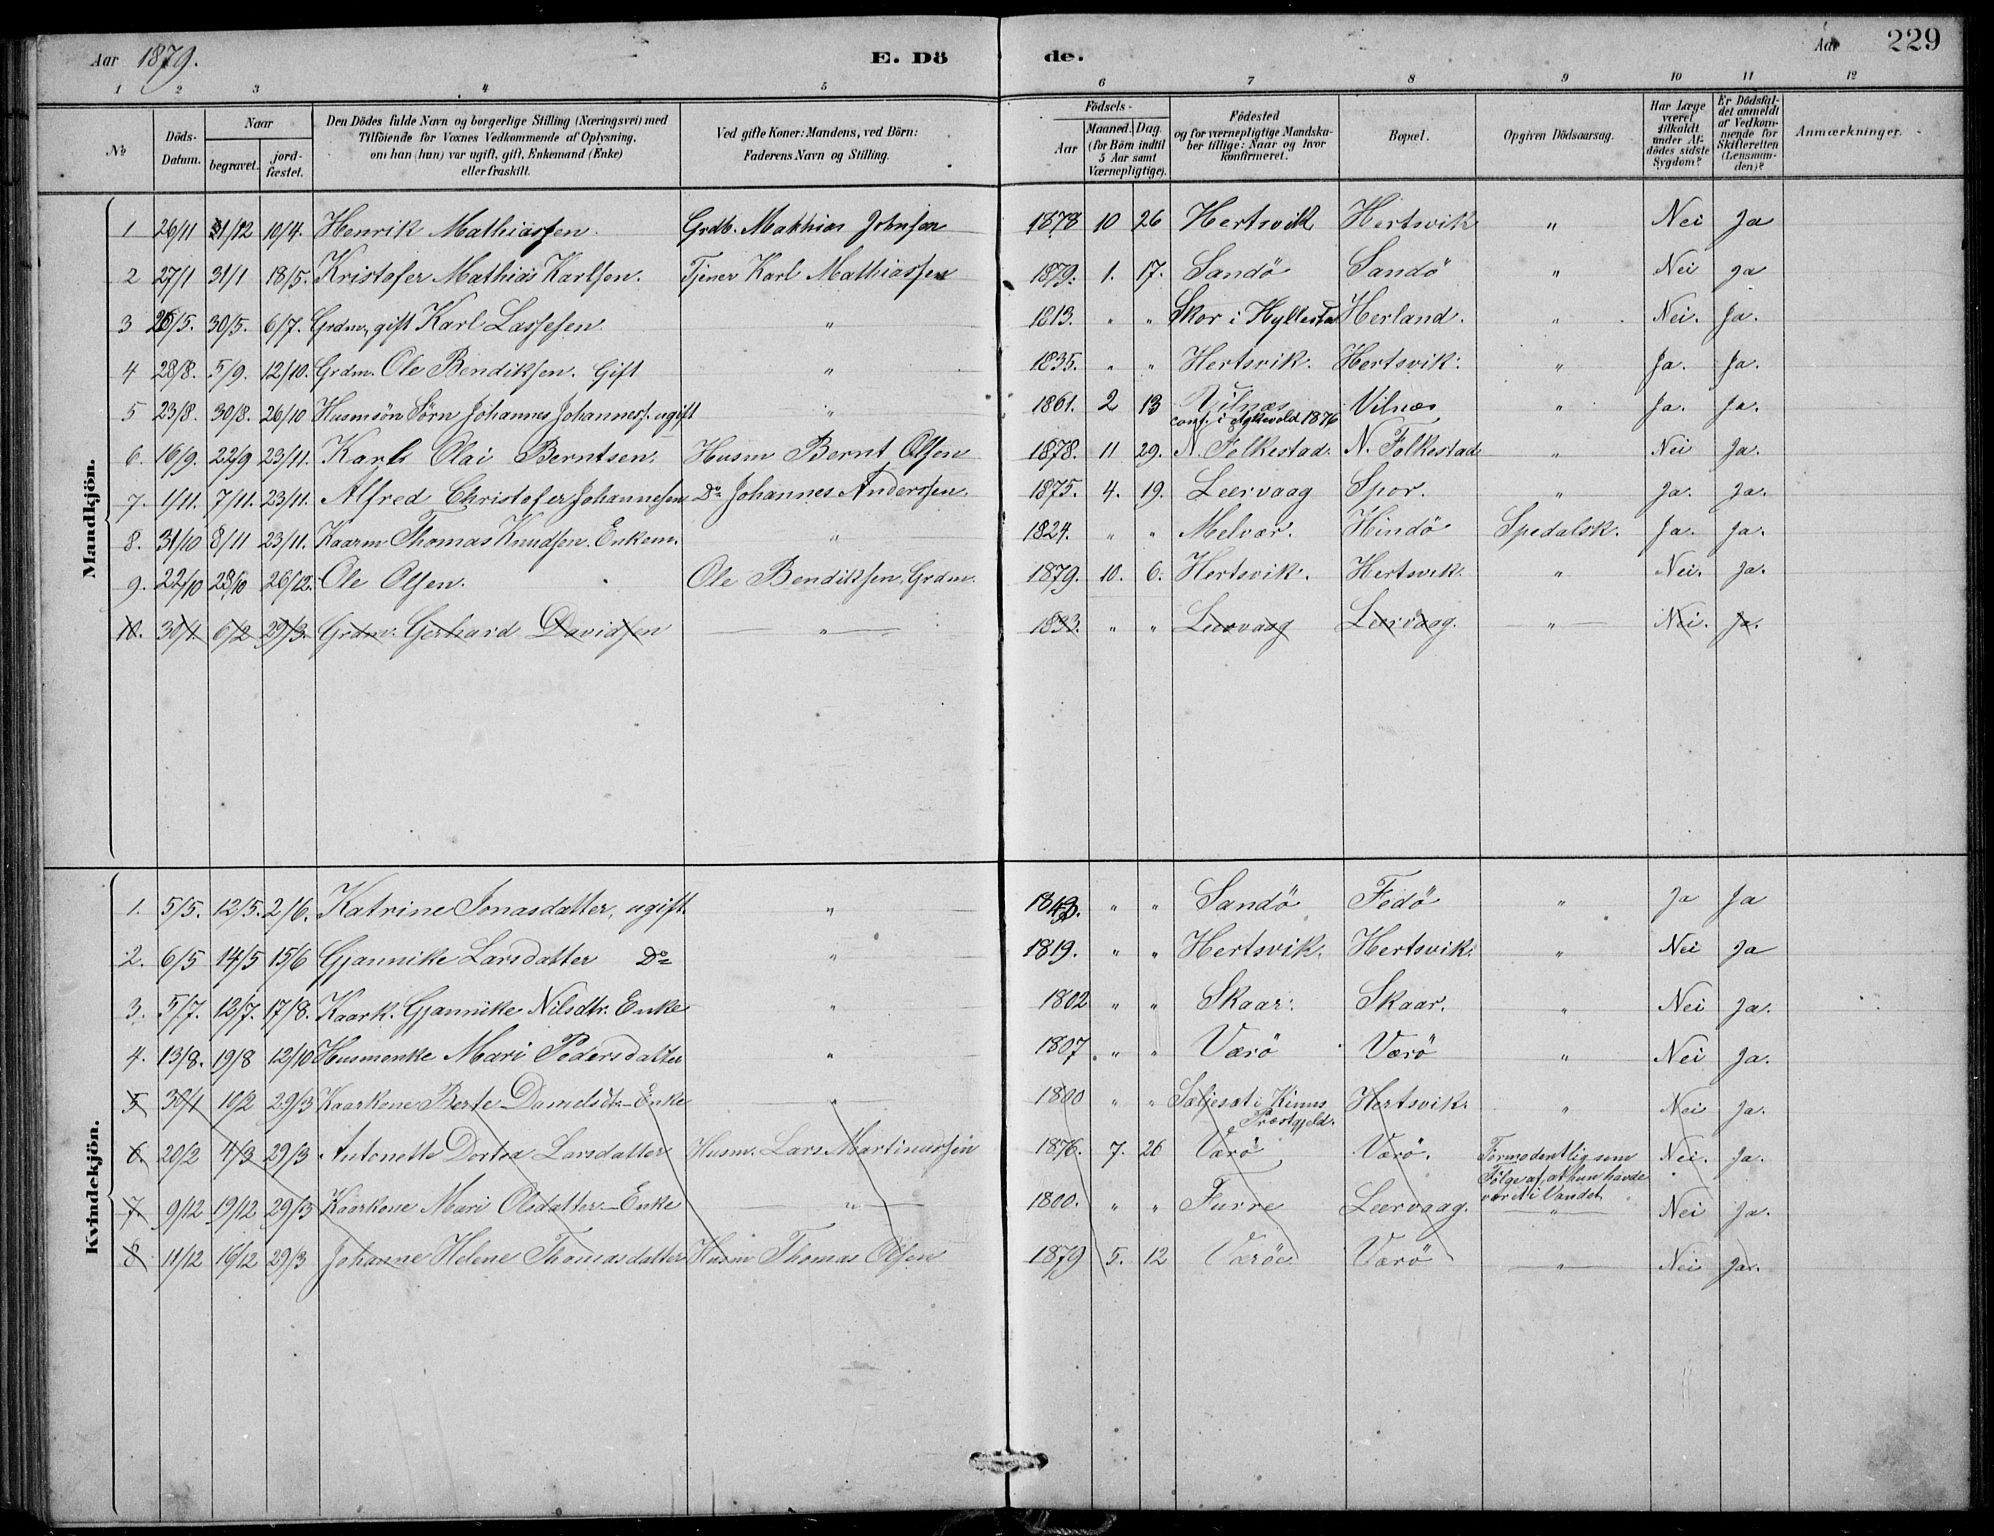 Aar 1879. E. Dö de. Aar 229
1 2 3 4 5 6 7 8 9 10 11 12
No
Döds-Datum.
Naar
begravet.
jord-fæstet.
Den Dödes fulde Navn og borgerlige Stilling (Næringsvei) med
Tilföiende for Voxnes Vedkommende af Oplysning,
om han (hun) var ugift, gift, Enkemand (Enke)
eller fraskilt.
Ved gifte Koner: Mandens, ved Börn:
Faderens Navn og Stilling.
Födsels-
Aar
Maaned. Dag.
(for Börn indtil
5 Aar samt
Værnepligtige).
Födested
og for værnepligtige Mandska-
ber tillige: Naar og hvor
konfirmeret.
Bopæl.
Opgiven Dödsaarsag.
Har Læge
været
tilkaldt
under Af-
dödes sidste
Sygdom?
Er Dödsfal-
det anmeldt
af Vedkom-
mende for
Skifteretten
(Lensman-
den)?
Anmærkninger.
Mandkjön.
1 26/11 31/12 10/4. Henrik Mathiassen. Grdb. Mathias Johnsen 1878 10 26 Hertsvik Hertsvik " Nei Ja
2 27/1 31/1 18/5. Kristofer Mathias Karlsen. Tjener Karl Mathiassen 1879. 1. 17. Sandö Sandö " Nei Ja
3 25/5. 30/5. 6/7. Grdm. gift Karl Lassesen " 1813. " " Skor i Hyllestad Herland. " Nei. Ja.
4 28/8. 5/9. 12/10. Grdm. Ole Bendiksen. Gift " 1835. " " Hertsvik. Hertsvik. " Ja. Ja.
5 23/8. 30/8. 26/10 Husmsön Sörn Johannes Johanness. ugift " 1861. 2 13 Vilnæs Vilnæs " Ja. Ja.
conf. i Askevold 1876
6. 16/9. 22/9 23/11. Karl Olai Berntsen. Husm Bernt Olsen 1878. 11 29. N. Folkestad. N. Folkestad " Nei Ja.
7. 1/11. 7/11. 23/11. Alfred Christofer Johannesen Do Johannes Anderssen. 1875. 4. 19. Leervaag Spor. " Ja. Ja.
8. 31/10 8/11 23/11. Kaarm Thomas Knudsen. Enkem. " 1824. " " Melvær. Hindö Spedalsk. Ja. Ja.
9. 22/10 28/10 26/12. Ole Olsen. Ole Bendiksen, Grdm. 1879. 10. 6. Hertsvik. Hertsvik. " Nei. Ja.
10. 30/1. 6/2 29/3. Grdm. Gerhard Davidsen " 1833. " " Leervaag Leervaag. " Nei. Ja.
Kvindekjön.
1. 5/5. 12/5. 2/6. Katrine Jonasdatter, ugift. " 1843. " " Sandö Fedö " Ja Ja
2. 6/5 14/5 15/6 Gjannike Larsdatter Do " 1819. " " Hertsvik. Hertsvik. " Nei Ja
3. 5/7. 12/7. 17/8. Kaark. Gjannike Nilsdtr. Enke " 1802 " " Skaar. Skaar. " Nei Ja.
4. 13/8. 19/8 12/10 Husmenke Mari Pedersdatter " 1807. " " Værö Værö " Nei Ja.
5 30/1 10/2 29/3 Kaarkone Berte Danielsdtr Enke " 1800 " " Sæljesæt i Kinns Hertsvik. " Nei Ja.
Præstgjeld.
6. 20/2 4/3 29/3 Antonette Dortea Larsdatter Husm. Lars Martinussen 1876. 7. 26 Værö Værö. Formodentlig som Nei. Ja.
Fölge af, at hun havde
været i Vandet
7. 9/12 19/12 29/3 Kaarkone Mari Olsdatter Enke " 1800. " " Furre Leervaag. " Nei Ja.
8 11/12 16/12 29/3 Johanne Helene Thomasdatter Husm Thomas Olsen 1879 5. 12 Værö Værö " Nei Ja.